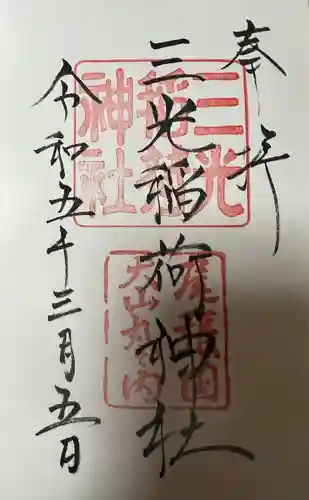 奉拝
三光稲荷神社
令和五年三月五日
三光
稲荷
神社
尾張国
犬山丸の内